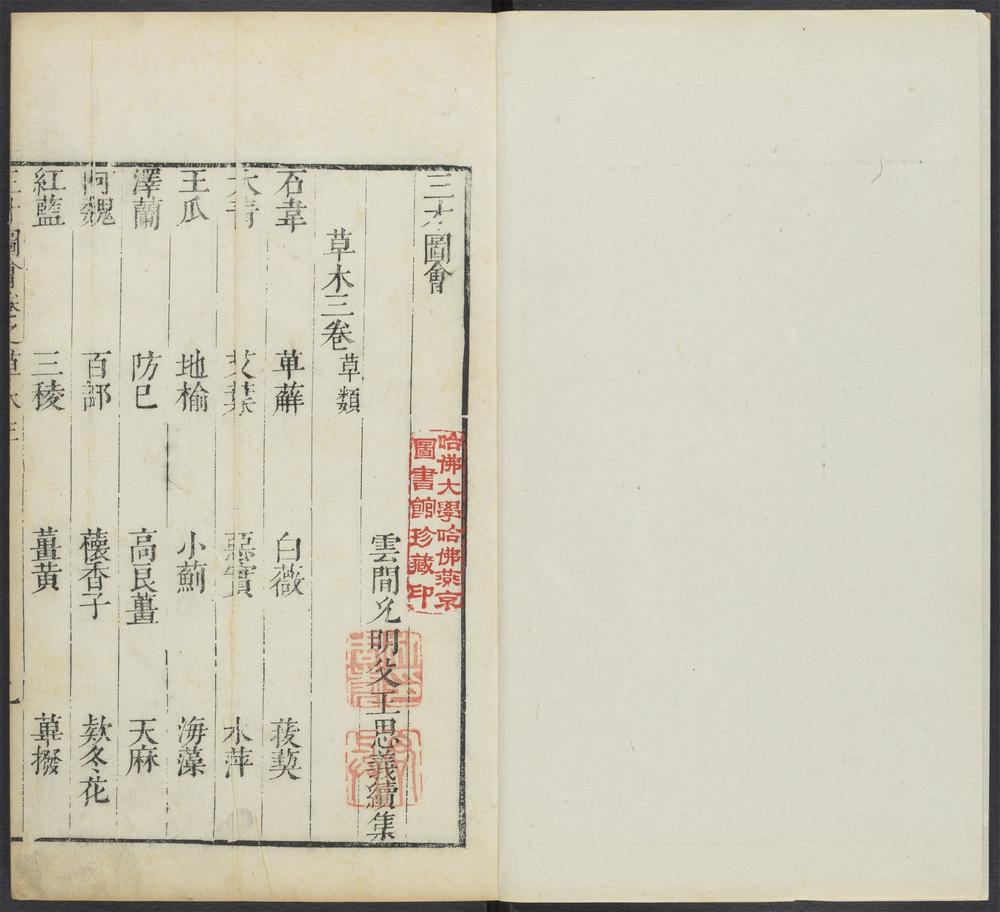 三才圖會
雲間允明父王思義續集
草木三卷 草類
石韋 萆薢 白薇 菝葜
大青 艾葉 惡實 水萍
王瓜 地榆 小薊 海藻
澤蘭 防巳 高良薑 天麻
阿魏 百部 蘹香子 欵冬花
紅藍 三稜 薑黄 蓽撥
三才圖會卷之草木三
哈佛大學哈佛燕京
圖書館珍藏印